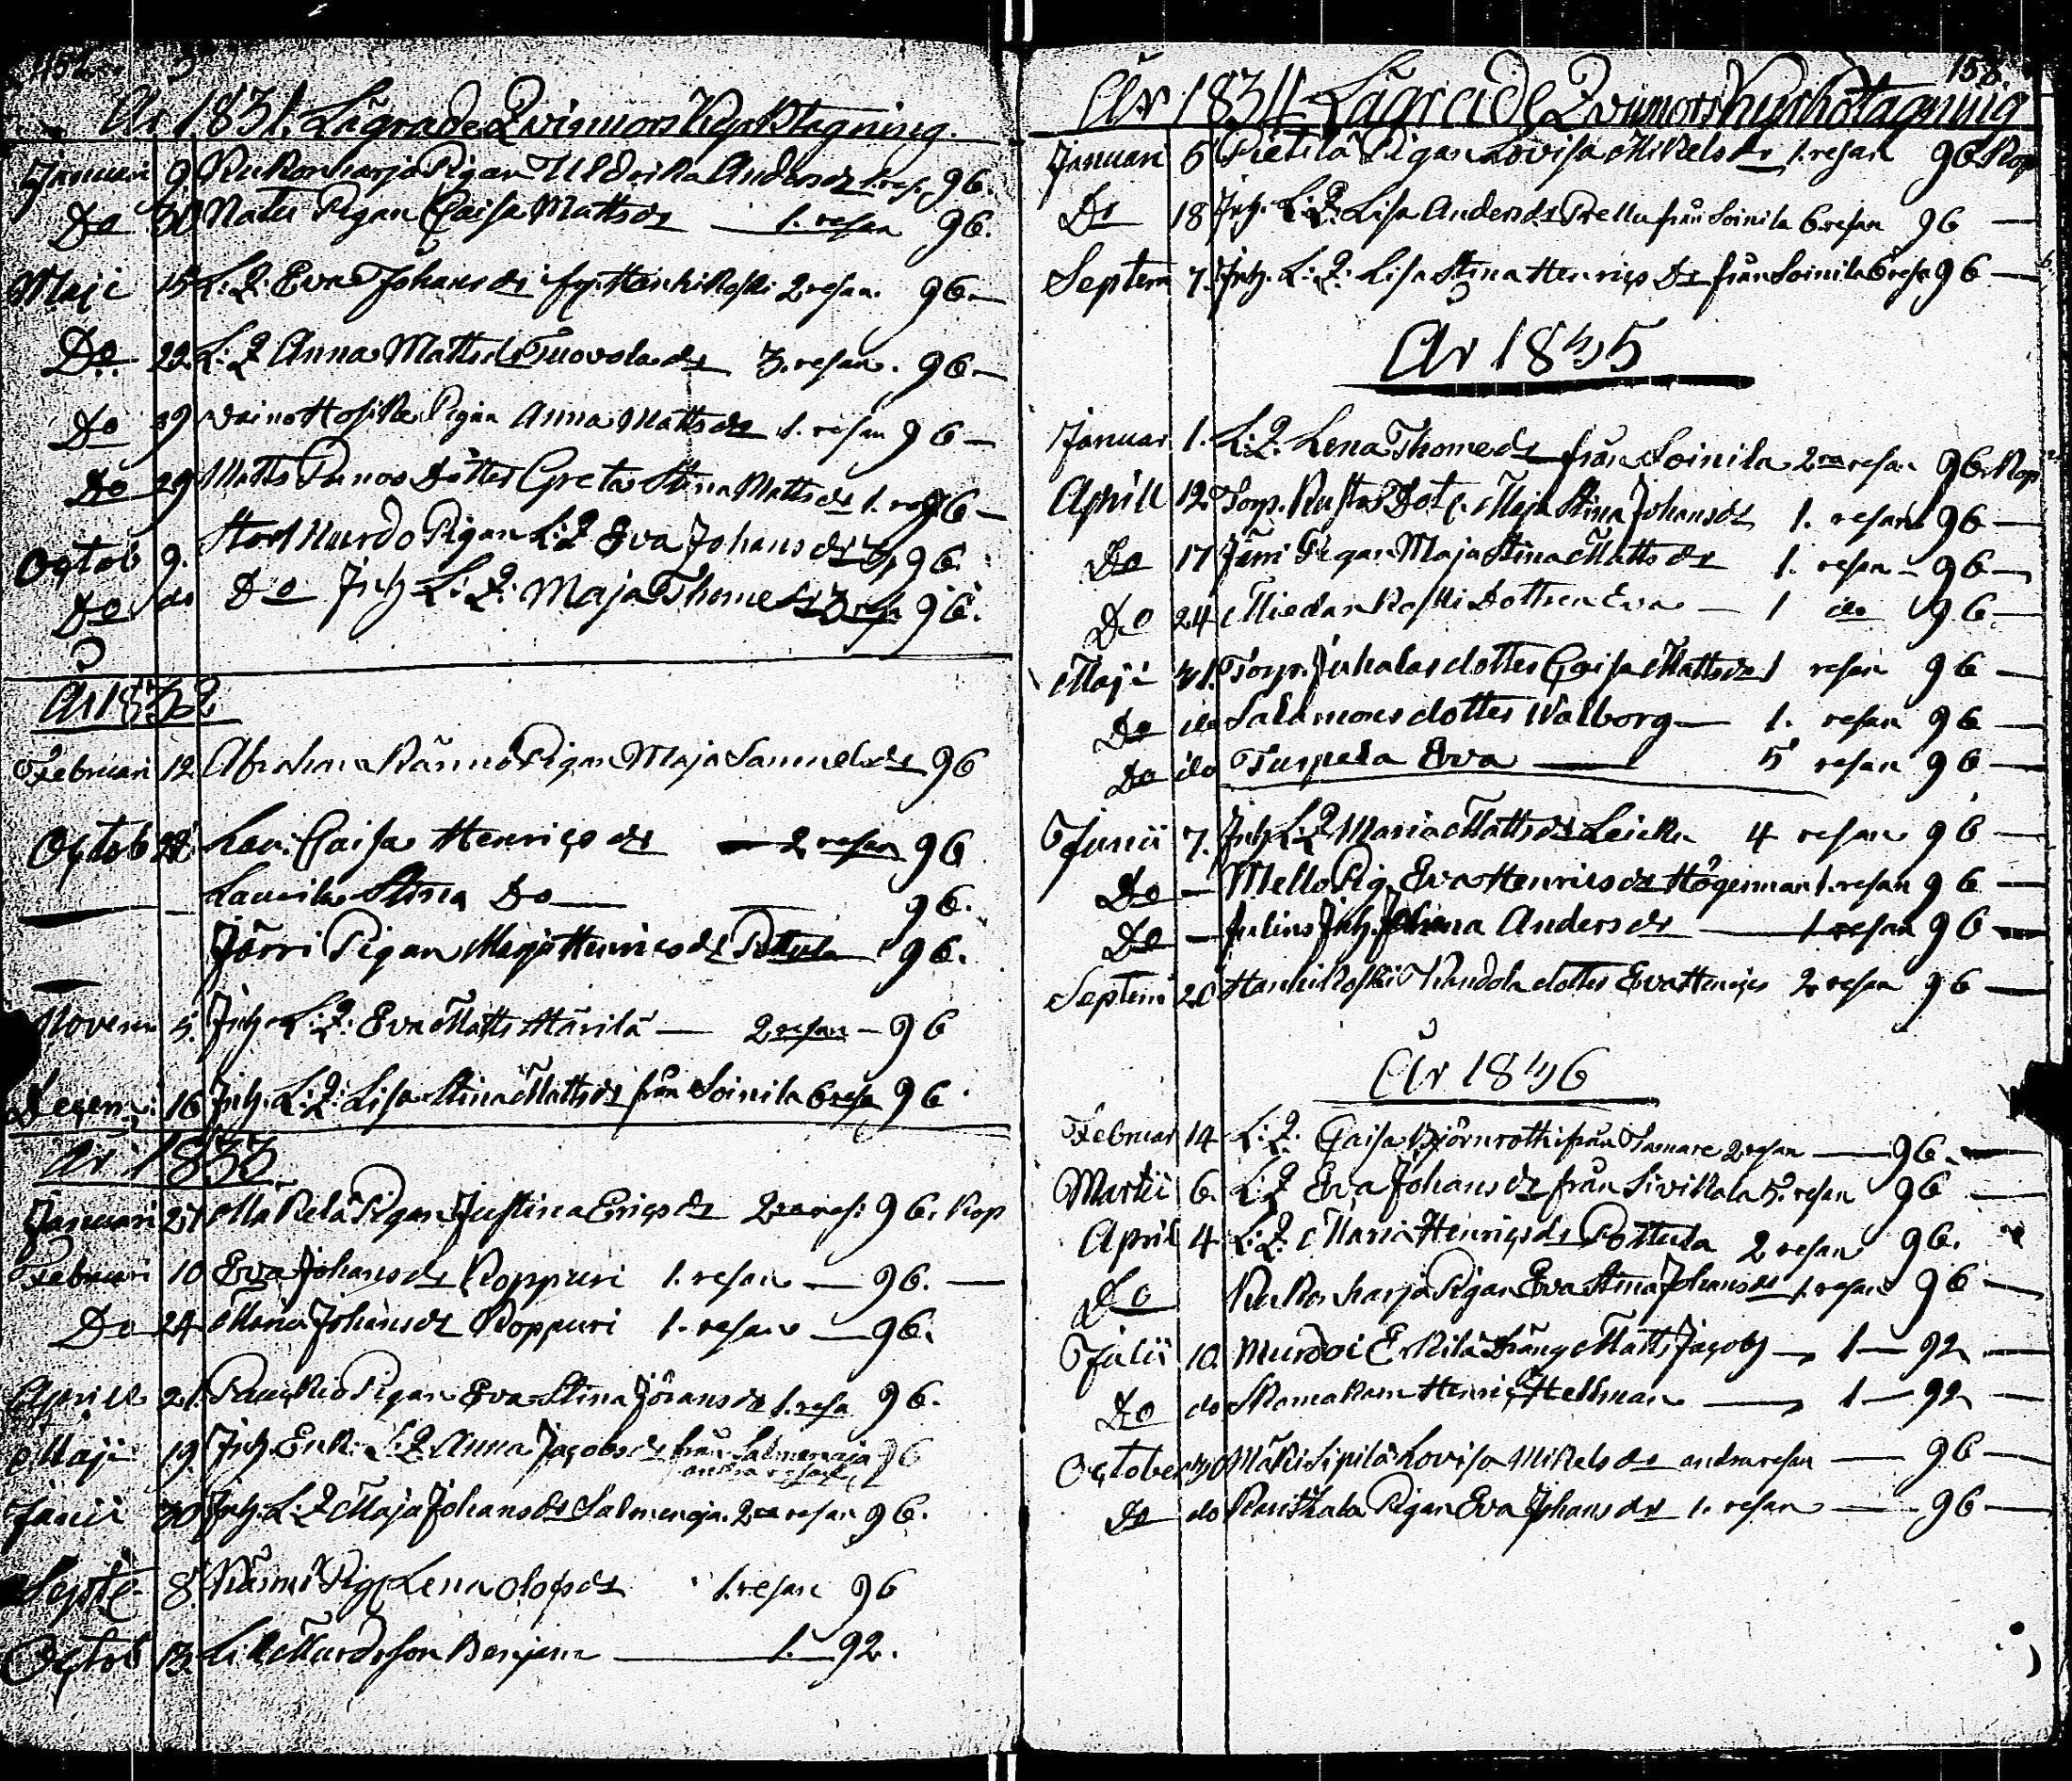 152
År 1831. Lägrade Qvinnors Kyrktagning.
Januari 9. Kukonharja Pigan Uldrika Andersdr 1. res. 96.
Do 30 Natu Pigan Caisa Mattsdr 1. resan 96.
Maji 15 L: Q: Eva Johansdr fr. Hanhikoski 2 resan. 96 —
Do 22. L: Q Anna Mattsdr Tuovola dr 3. resan. 96 —
Do 29 Pigan Anna Mattsdr 1. resan 96 —
Do 29 Matts Dotter Greta Stina Mattsdr 1. res 96 —
Octob 9. Murdo Pigan L: Q Eva Johansdr 96.
Do do Do Inh L: Q: Maja Thomedr 3 res. 96.
År 1832
Februari 12 Abraham Pigan Maja Samuelsdr 96
Octob 28 Caisa Henricsdr — 2 resan 96
Laurila Stina Do — 96.
Järri Pigan Maja Henricsdr Pottula 96.
Novem 5. Inh. L: Q: Eva Matts Märilä — 2 resan — 96
Decem 16 Inh. L: Q: Lisa Stina Mattsdr från Soinila 6 resa 96.
År 1833
Januari 27 Mäkelä Pigan Justina Ericsdr 2 res: 96. Kop
Februari 10 Eva Johansdr Koppuri 1. resan — 96. —
Do 24 Maria Johansdr Koppuri 1. resan — 96.
Aprill 21. Pigan Eva Stina Jöransdr 1. resa 96.
Maji 19. Inh. Enk. L: Q. Anna Jacobsdr från Salmenaja 96
andra resan
Junii 30 Inh. L: Q Maja Johansdr Salmenaja. 2 resan 96.
Septe 8. Pig Lena Olofsdr 1. resan 96
Octob 13. Benjam — 1. — 92.
153.
År 1834 Lägrade Qvinnors Kyrkotagning
Januari 6 Pietilä Pigan Lovisa Mikelsdr 1. resan 96 Kop
Do 18 Inh. L: Q: Lisa Andersdr Prellu från Soinila 6 resan 96 —
Septem 7. Inh. L: Q: Lisa Stina Henrics Dr från Soinila 6 resa 96 —
År 1835
Januar 1. L: Q. Lena Thomedr från Soinila 2 resan 96 Kop
Aprill 12 Torp. Dot. Maja Stina Johansdr 1. resan 96 —
Do 17 Järri Pigan Maja Stina Mattsdr 1. resan — 96 —
Do 24 Miedankoski Dottren Eva — 1 do 96
Maji 31. Torp. Juhalas dotter Caisa Mattsdr 1 resan 96 —
Do do Salomons dotter Walborg — 1. resan 96 —
Do do Turpela Eva — 5 resan 96 —
Junii 7. Inh L: Q Maria Mattsdr Leicku 4 resan 96 —
Do — Mello Pig. Eva Henricsdr Högerman 1. resan 96 —
Do — Julius Inh. Andersdr — 1 resan 96 —
Septem 20 Hanhikoski dotter Eva Henrics 2 resan 96 —
År 1836
Februar 14 L: Q. Caisa Björnroth från Tamare 2 resan — 96. —
Martii 6. L: Q Eva Johansdr från Sivikala 5. resan 96 —
April 4 L: Q. Maria Henricsdr Pottula 2 resan 96.
Do Kukonharja Pigan Eva Stina Johansdr 1. resan 96 —
Julii 10. Murdoi Erkilä Dräng Matts Jacobs — 1 — 92 —
Do do Skomakare Henric Hellman — 1 — 92 —
October 30 Mäki Sipilä Lovisa Mikelsdr andra resan — 96 —
Do do Pigan Eva Johansdr 1. resan — 96 —